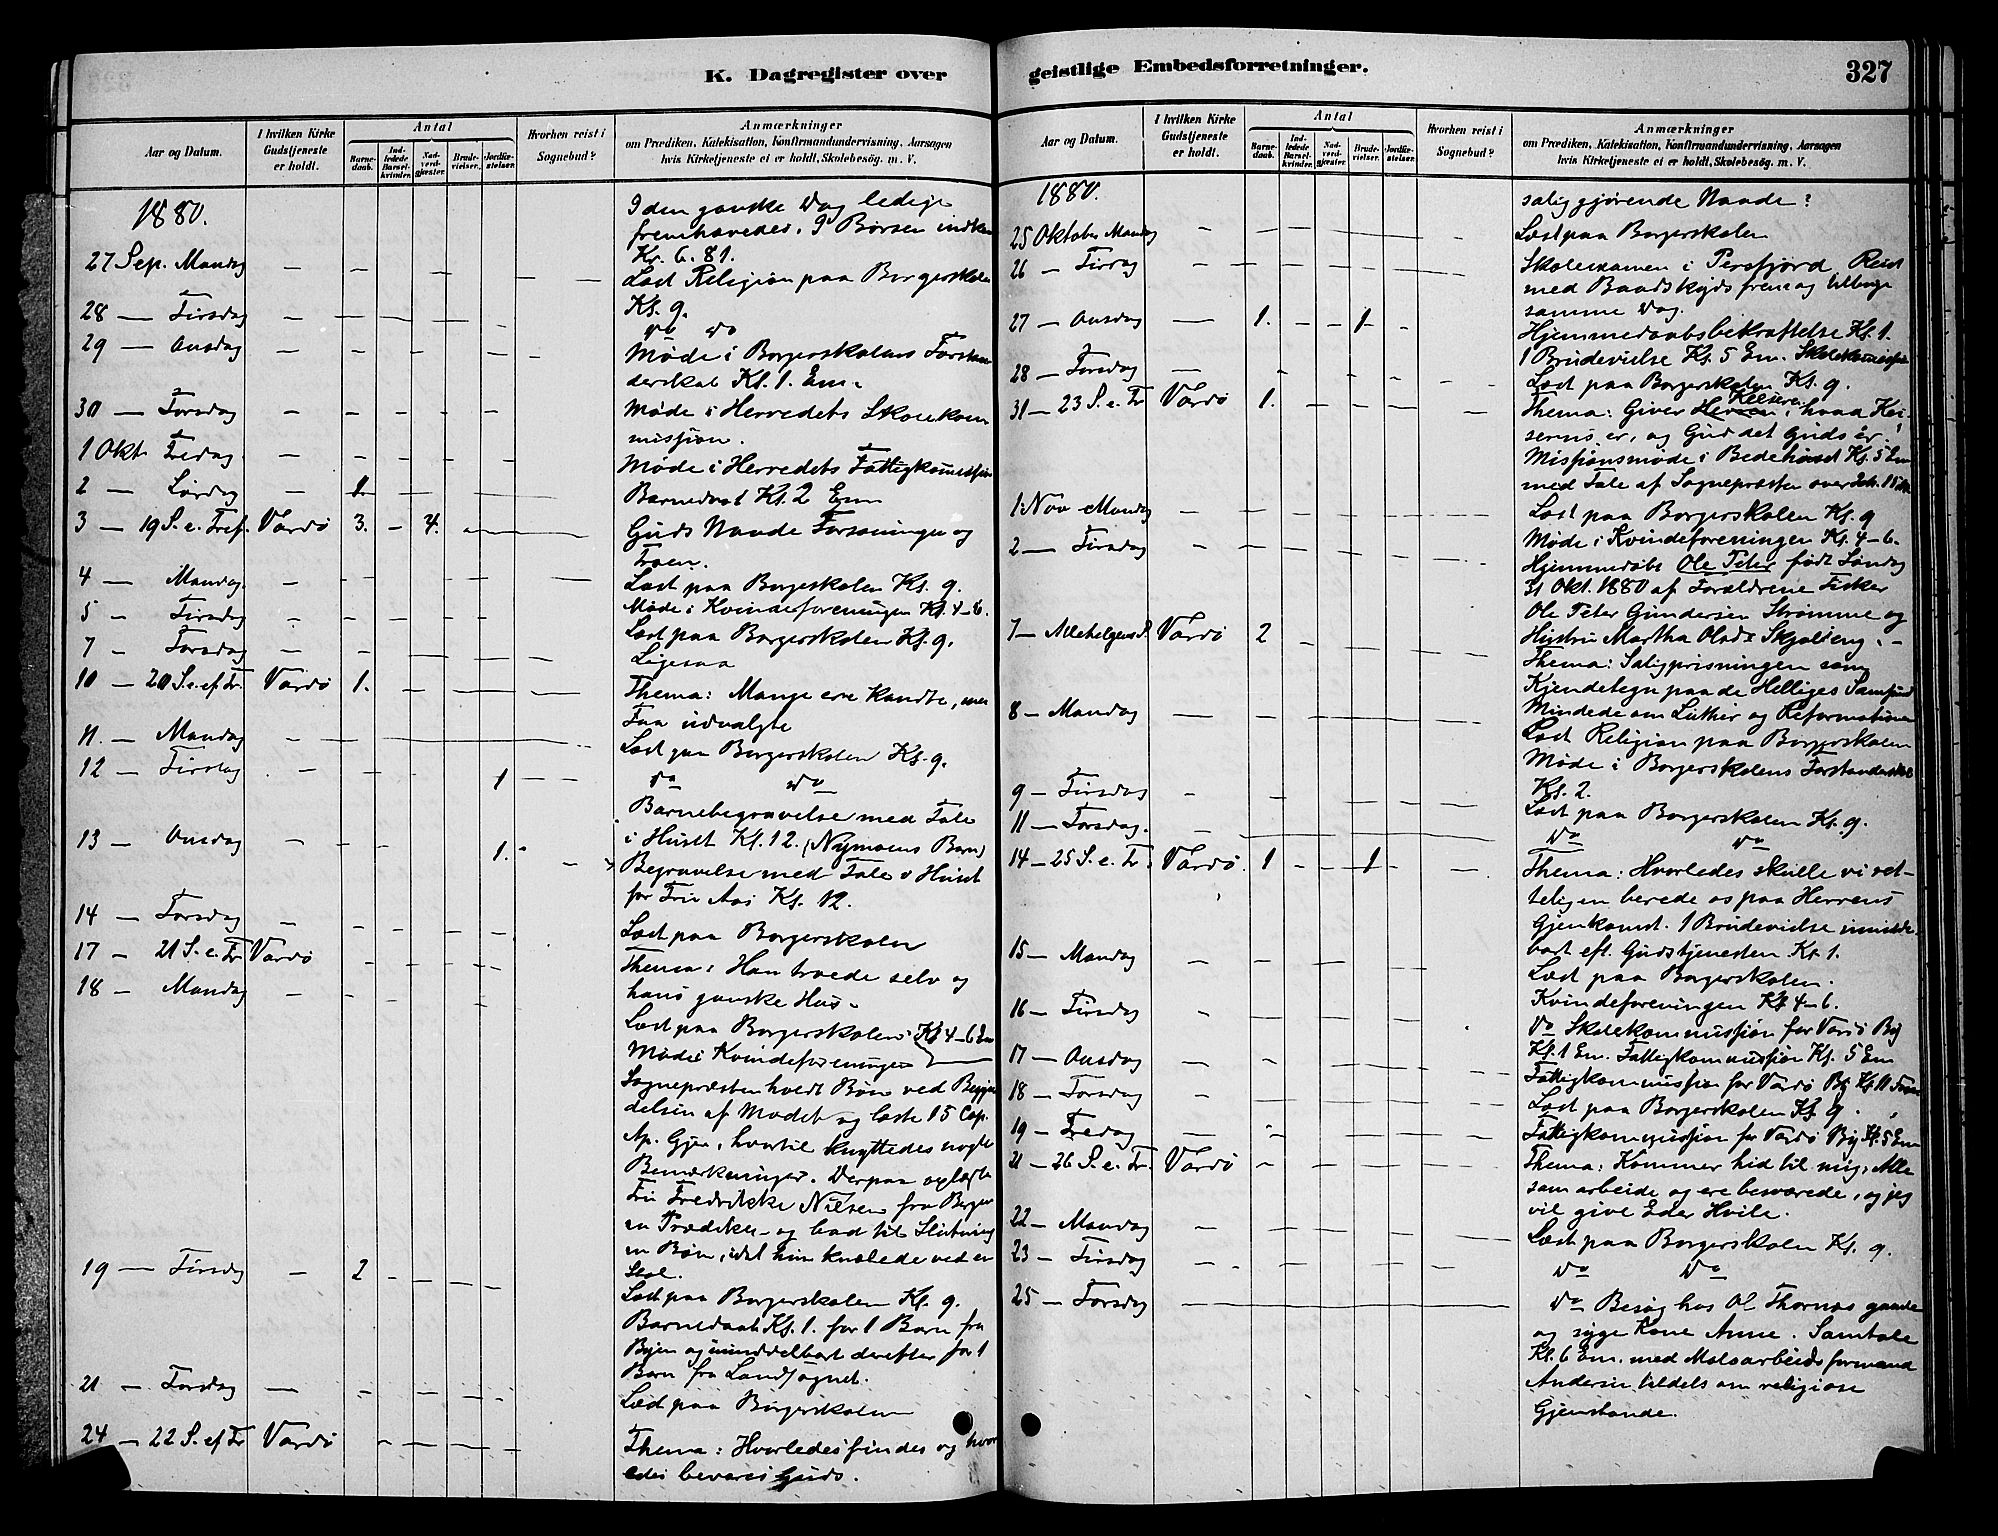 K. Dagregister over
Aar og Datum.
I hvilken Kirke Gudstjeneste er holdt.
Antal
Barnedaab.
Indledede Barselkvinder.
Nadverdgjæster.
Brudevielser.
Jordfæstelser.
Hvorhen reist i Sognebud?
Anmærkninger
om Prædiken, Katekisation, Konfirmandundervisning, Aarsagen
hvis Kirketjeneste ei er holdt, Skolebesøg. m. V.
1880.
I den ganske Dag ledige
fremhævedes. I Bøssen indkom
Kr. 6.81.
27 Sep. Mandag
Læst Religion paa Borgerskolen
Kl. 9.
28 — Tirsdag
Do Do
29 — Onsdag
Møde i Borgerskolens Forstan
derskab Kl. 1. Em.
30 — Torsdag
Møde i Herredets Skolekom
mission.
1 Okt. Fredag
Møde i Herredets Fattigkommission
2 — Lørdag 1.
Barnedaab Kl. 2 Em
3 — 19 S. e. Tref. Vardø 3. - 4.
Guds Naade Forsoningen og
Troen.
4 — Mandag.
Læst paa Borgerskolen Kl. 9.
Møde i Kvindeforeningen Kl. 4-6.
5 — Tirsdag
Læst paa Borgerskolen Kl. 9.
7 — Torsdag
Ligesaa
10 — 20 S. ef. Tr. Vardø 1.
Thema: Mange ere kaldte, men
Faa udvalgte
11. — Mandag
Læst paa Borgerskolen Kl. 9.
12 — Tirsdag 1
Do Do
Barnebegravelse med Tale
i Huset Kl. 12. (Nymoens Barn)
13 — Onsdag 1.
Begravelse med Tale i Huset
for Fru Aas Kl. 12.
14 — Torsdag
Læst paa Borgerskolen
17 — 21 S. e. Tr Vardø
Thema: Han troede selv og
hans ganske Hus.
18 — Mandag
Læst paa Borgerskolen. Kl 4-6 Em
Møde i Kvindeforeningen
Sognepræsten holdt Bøn ved Begyn
delsen af Mødet og læste 15 Cap.
Ap. Gjer., hvortil knyttedes nogle
Bemærkninger. Derpaa oplæste
Fru Fredrikke Nielsen fra Bergen
en Prædiken og bad til Slutning
en Bøn, idet hun knælede ved en
Stol.
19 — Tirsdag 2
Læst paa Borgerskolen Kl. 9.
Barnedaab Kl. 1. for 1 Barn fra
Byen og umiddelbart derefter for 1
Barn fra Landsognet.
21 — Torsdag
Læst paa Borgerskolen
24 — 22 S. ef Tr Vardø
Thema: Hvorledes findes og hvor
ledes bevares Guds.
geistlige Embedsforretninger.
327
Aar og Datum.
I hvilken Kirke Gudstjeneste er holdt.
Antal
Barnedaab.
Indledede Barselkvinder.
Nadverdgjæster.
Brudevielser.
Jordfæstelser.
Hvorhen reist i Sognebud?
Anmærkninger
om Prædiken, Katekisation, Konfirmandundervisning, Aarsagen
hvis Kirketjeneste ei er holdt, Skolebesøg. m. V.
1880.
saliggjørende Naade?
25 Oktober Mandag
Læst paa Borgerskolen
26 — Tirsdag
Skoleexamen i Persfjord. Reist
med Baadskyds frem og tilbage
samme Dag.
27 — Onsdag 1. 1
Hjemmedaabsbekræftelse Kl. 1.
1 Brudevielse Kl. 5 Em. Skolekommission
28 — Torsdag
Læst paa Borgerskolen Kl. 9.
31 — 23 S. e. Tr Vardø 1.
Thema: Giver Keiseren, hvad Kei-
serens er, og Gud det Guds er!
Missionsmøde i Bedehuset Kl. 5 Em
med Tale af Sognepræsten over
1. Nov Mandag
Læst paa Borgerskolen Kl. 9
2 — Tirsdag
Møde i Kvindeforeningen Kl. 4-6.
Hjemmedøbt Ole Peter født Søndag
31 Okt. 1880 af Forældrene Fisker
Ole Peter Gundersen Strømme og
Hustru Martha Olsdr Skjolseng.
7 — Allehelgens S. Vardø 2
Thema: Saligprisningen som
Kjendetegn paa de Helliges Samfund
Mindede om Luther og Reformationen
8 — Mandag
Læst Religion paa Borgerskolen
Møde i Borgerskolens Forstanderskab
Kl. 2.
9 — Tirsdag
Læst paa Borgerskolen Kl. 9.
11 — Torsdag.
Do Do
14 — 25 S. e. Tr. Vardø. 1 1
Thema: Hvorledes skulle vi ret-
teligen berede os paa Herrens
Gjenkomst. 1 Brudevielse umiddel-
bart eft. Gudstjenesten Kl. 1.
15 — Mandag
Læst paa Borgerskolen.
Kvindeforeningen Kl 4-6.
16 — Tirsdag
Do Skolekommission for Vardø By
Kl. 1 Em. Fattigkommission Kl. 5 Em
17 — Onsdag
Fattigkommission for Vardø By Kl. 11 Form
18 — Torsdag
Læst paa Borgerskolen Kl. 9.
19 — Fredag
Fattigkommission for Vardø By Kl. 5 Em
21 — 26 S. e. Tr. Vardø
Thema: Kommer hid til mig, Alle
som arbeide og ere besværede, og jeg
vil give Eder Hvile.
22 — Mandag
Læst paa Borgerskolen Kl. 9.
23 — Tirsdag
Do Do
25 — Torsdag
Do Besøg hos Ol Thornæs gamle
og syge Kone Anne. Samtale
Kl. 6 Em. med Moloarbeidsformand
Andersen tildels om religiøse
Gjenstande.